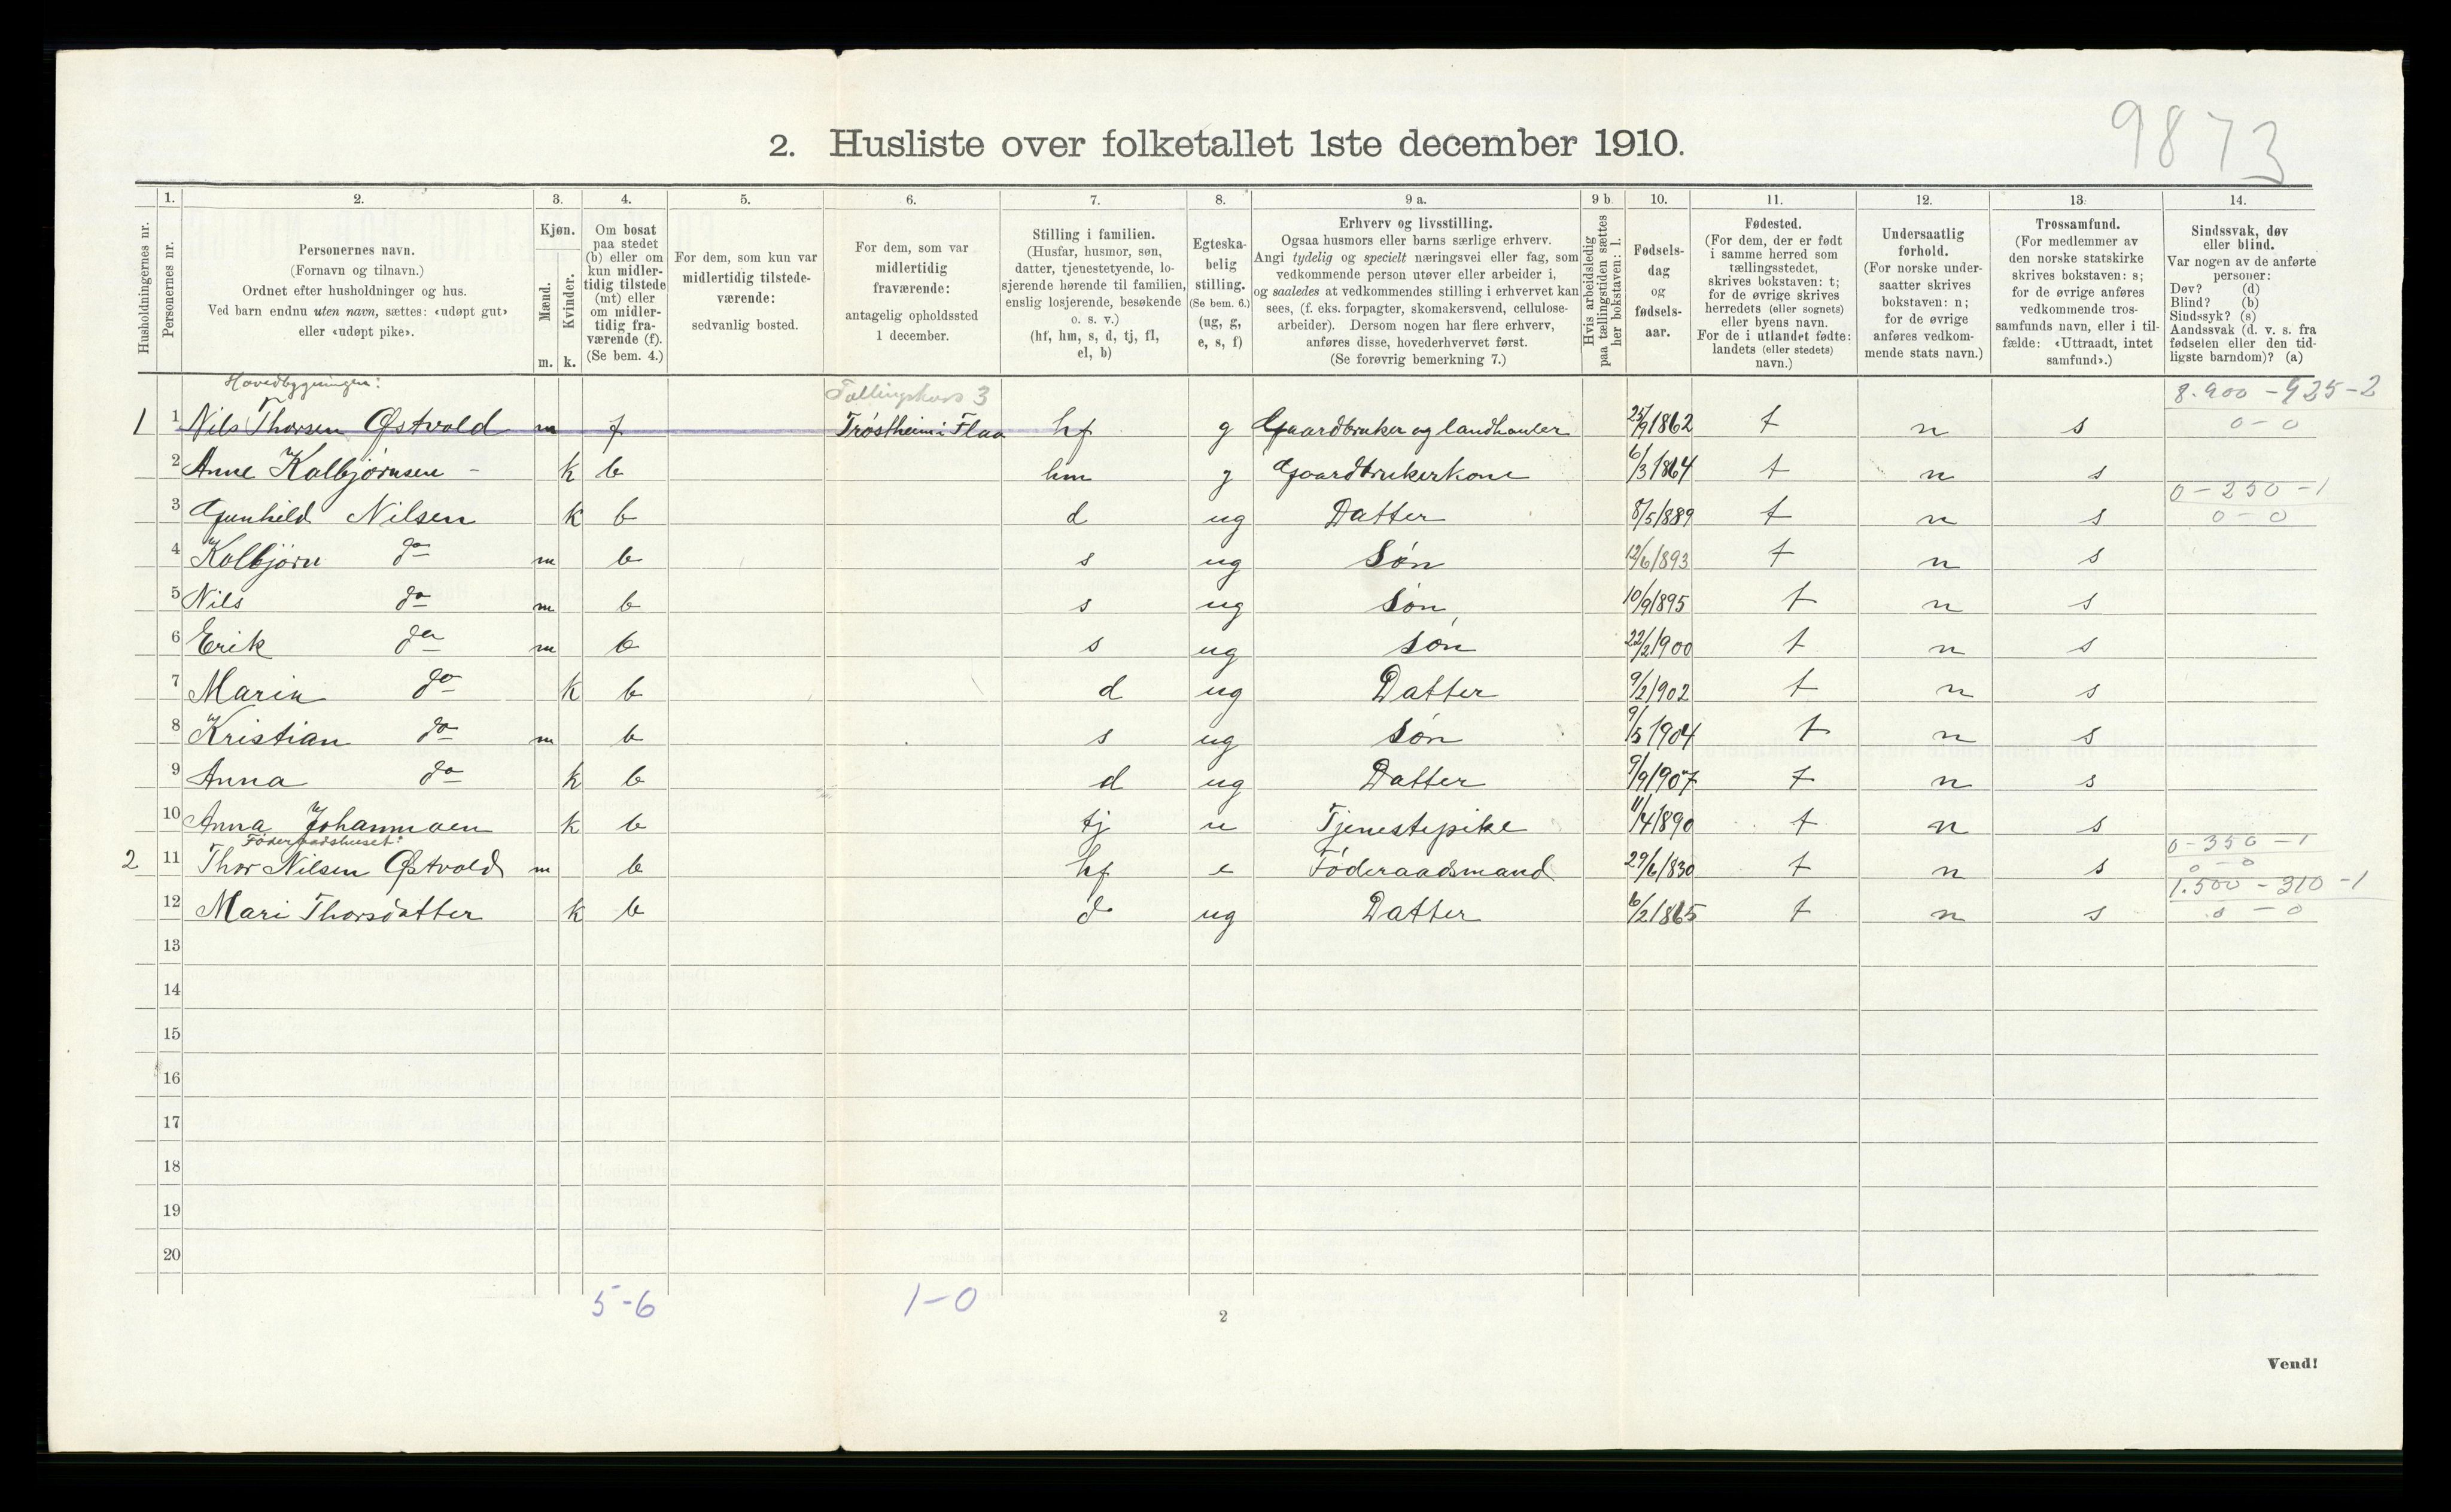 9873
2. Husliste over folketallet 1ste december 1910.
Husholdningernes nr.
1. Personernes nr.
2. Personernes navn.
(Fornavn og tilnavn.)
Ordnet efter husholdninger og hus.
Ved barn endnu uten navn, sættes: «udøpt gut»
eller «udøpt pike».
3. Kjøn.
Mænd. m.
Kvinder. k.
4. Om bosat
paa stedet
(b) eller om
kun midler-
tidig tilstede
(mt) eller
om midler-
tidig fra-
værende (f).
(Se bem. 4.)
5. For dem, som kun var
midlertidig tilstede-
værende:
sedvanlig bosted.
6. For dem, som var
midlertidig
fraværende:
antagelig opholdssted
1 december.
7. Stilling i familien.
(Husfar, husmor, søn,
datter, tjenestetyende, lo-
sjerende hørende til familien,
enslig losjerende, besøkende
o. s. v.)
(hf, hm, s, d, tj, fl,
el, b)
8. Egteska-
belig
stilling.
(Se bem. 6.)
(ug, g,
e, s, f)
9 a. Erhverv og livsstilling.
Ogsaa husmors eller barns særlige erhverv.
Angi tydelig og specielt næringsvei eller fag, som
vedkommende person utøver eller arbeider i,
og saaledes at vedkommendes stilling i erhvervet kan
sees, (f. eks. forpagter, skomakersvend, cellulose-
arbeider). Dersom nogen har flere erhverv,
anføres disse, hovederhvervet først.
(Se forøvrig bemerkning 7.)
9 b Hvis arbeidsledig
paa tællingstiden sættes
her bokstaven: l.
10. Fødsels-
dag
og
fødsels-
aar.
11. Fødested.
(For dem, der er født
i samme herred som
tællingsstedet,
skrives bokstaven: t;
for de øvrige skrives
herredets (eller sognets)
eller byens navn.
For de i utlandet fødte:
landets (eller stedets)
navn.)
12. Undersaatlig
forhold.
(For norske under-
saatter skrives
bokstaven: n;
for de øvrige
anføres vedkom-
mende stats navn.)
13. Trossamfund.
(For medlemmer av
den norske statskirke
skrives bokstaven: s;
for de øvrige anføres
vedkommende tros-
samfunds navn, eller i til-
fælde: «Uttraadt, intet
samfund».)
14. Sindssvak, døv
eller blind.
Var nogen av de anførte
personer:
Døv? (d)
Blind? (b)
Sindssyk? (s)
Aandssvak (d. v. s. fra
fødselen eller den tid-
ligste barndom)? (a)
Hovedbygningen: 8.900 - 925 - 2
1 1 Nils Thorsen Østvold m f Trøstheim i Flaa hf g Gaardbruker og landhanler 25/9 1862 t n s 0 - 0
2 Anne Kolbjørnsen - k b hm g Gaardbrukerkone 6/3 1864 t n s
0 - 250 - 1
3 Gunhild Nilsen k b d ug Datter 8/5 1889 t n s 0 - 0
4 Kolbjørn do m b s ug Søn 12/6 1893 t n s
5 Nils do m b s ug Søn 10/9 1895 t n s
6 Erik do m b s ug Søn 22/2 1900 t n s
7 Marin do k b d ug Datter 9/2 1902 t n s
8 Kristian do m b s ug Søn 9/5 1904 t n s
9 Anna do k b d ug Datter 9/9 1907 t n s
10 Anna Johannesen k b tj u Tjenestepike 11/4 1890 t n s
Føderaadshuset: 0 - 350 - 1
2 11 Thor Nilsen Østvold m b hf e Føderaadsmand 29/6 1830 t n s 0 - 0
1.500 - 310 - 1
12 Mari Thorsdatter k b d ug Datter 6/2 1865 t n s 0 - 0
13
14
15
16
17
18
19
20
5 - 6 1 - 0
2
Vend!